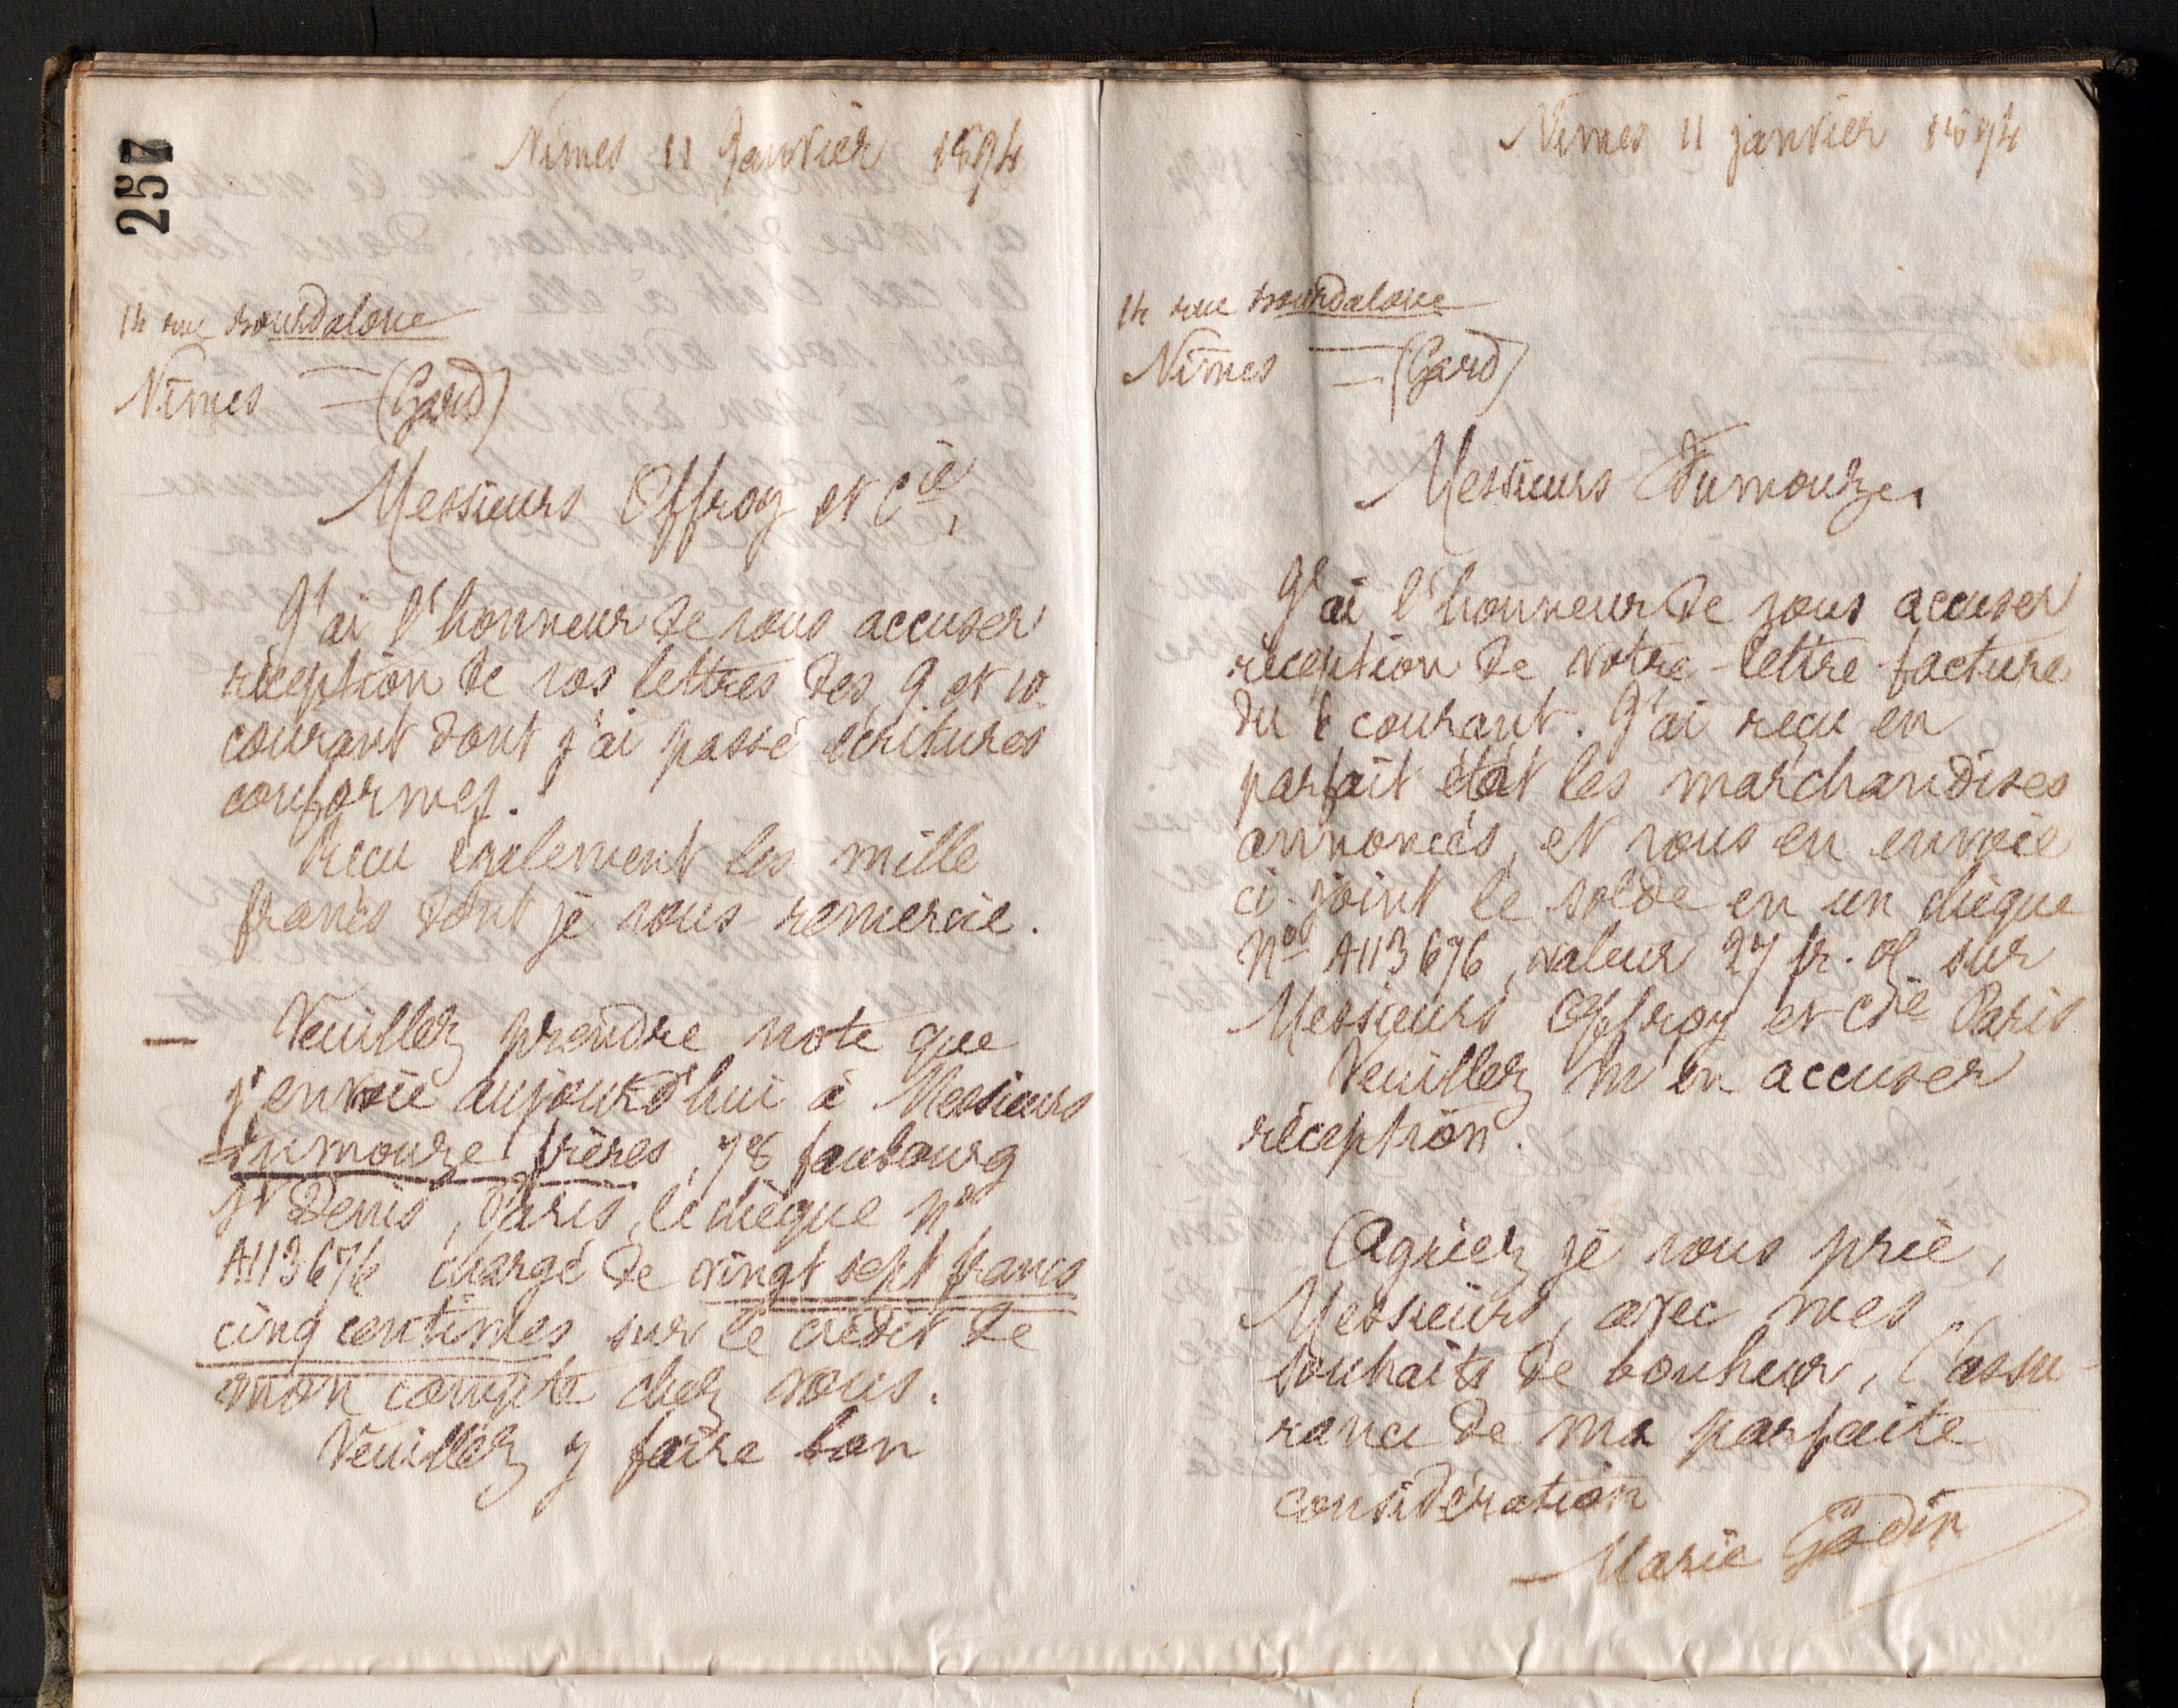 257
Nimes 11 Janvier 1894
14 rue bourdaloue
Nîmes — (Gard)
Messieurs Offroy et Cie,
J'ai l'honneur de vous accuser
réception de vos lettres des 9 et 10
courant dont j'ai passé écritures
conformes.
Reçu également les mille
francs dont je vous remercie.
— Veuillez prendre note que
j'envoie aujourd'hui à Messieurs
Dumouze frères, 78 faubourg
St Denis, Paris, le chèque no
A113676 chargé de vingt sept francs
cinq centimes sur le crédit de
mon compte chez vous.
Veuillez y faire bon
Nimes 11 janvier 1894
14 rue bourdaloue
Nîmes — (Gard)
Messieurs Dumouze,
J'ai l'honneur de vous accuser
réception de votre lettre facture
du courant. J'ai reçu en
parfait état les marchandises
annoncés, et vous en envoie
ci-joint le solde en un chèque
No A113676, valeur 27 fr. 05 sur
Messieurs Offroy et Cie Paris
Veuillez m'en accuser
réception.
Agréez je vous prie,
Messieurs, avec mes
souhaits de bonheur, l'assu
rance de ma parfaite
considération
Marie Godin